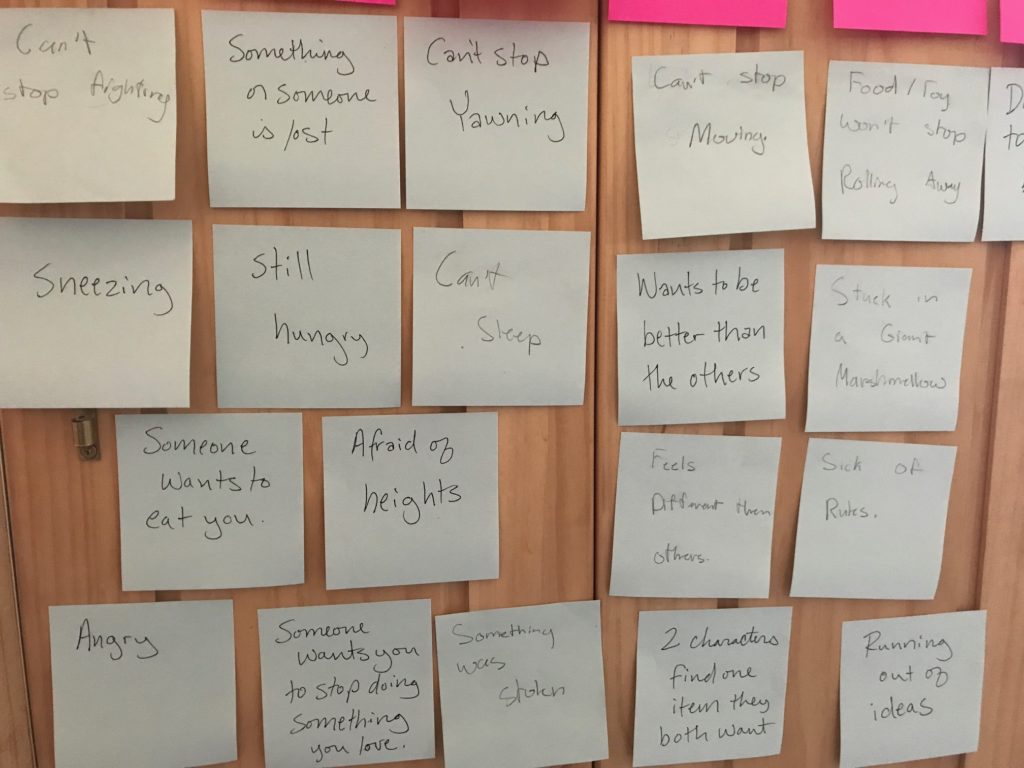 Can't
stop fighting
Something
or someone
is lost
Can't stop
Yawning
Can't stop
Moving
Food/Toy
won't stop
Rolling Away
Sneezing
Still
hungry
Can't
Sleep
Wants to be
better than
the others
Stuck in
a Giant
Marshmellow
Someone
wants to
eat you.
Afraid of
heights
Feels
Different than
others.
Sick of
Rules.
Angry
Someone
wants you
to stop doing
something
you love.
Something
was
stolen
2 characters
find one
item they
both want
Running
out of
ideas